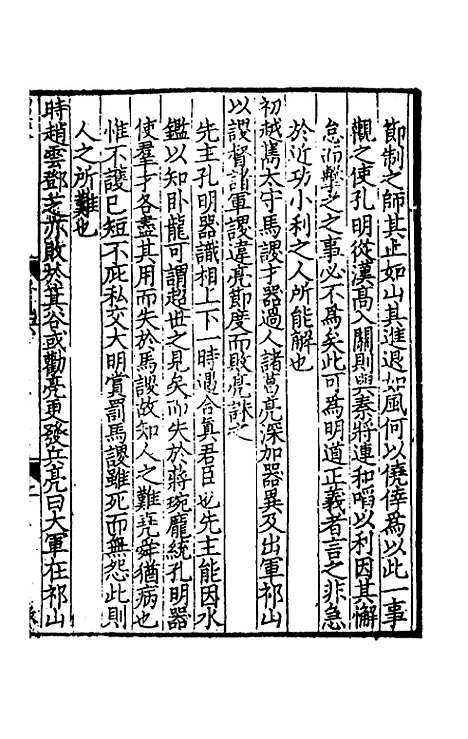 節制之師其止如山其進退如風何以僥倖為以此一事
觀之使孔明從漢髙入關則與秦將連和啗以利因其懈
怠而擊之之事必不為矣此可為明道正義者言之非急
於近功小利之人所能解也
初越嶲太守馬謖才器過人諸葛亮深加器異及出軍祁山
以謖督諸軍謖違亮節度而敗亮誅之
先主孔明器識相上下一時遇合真君臣也先主能因水
鑑以知卧龍可謂超世之見矣而失於蔣琬龐統孔明器
使羣才各盡其用而失於馬謖故知人之難堯舜猶病也
惟不護已短不庇私交大明賞罰馬謖雖死而無怨此則
人之所難也
時趙雲鄧芝亦敗於箕谷或勸亮更發兵亮曰大軍在祁山